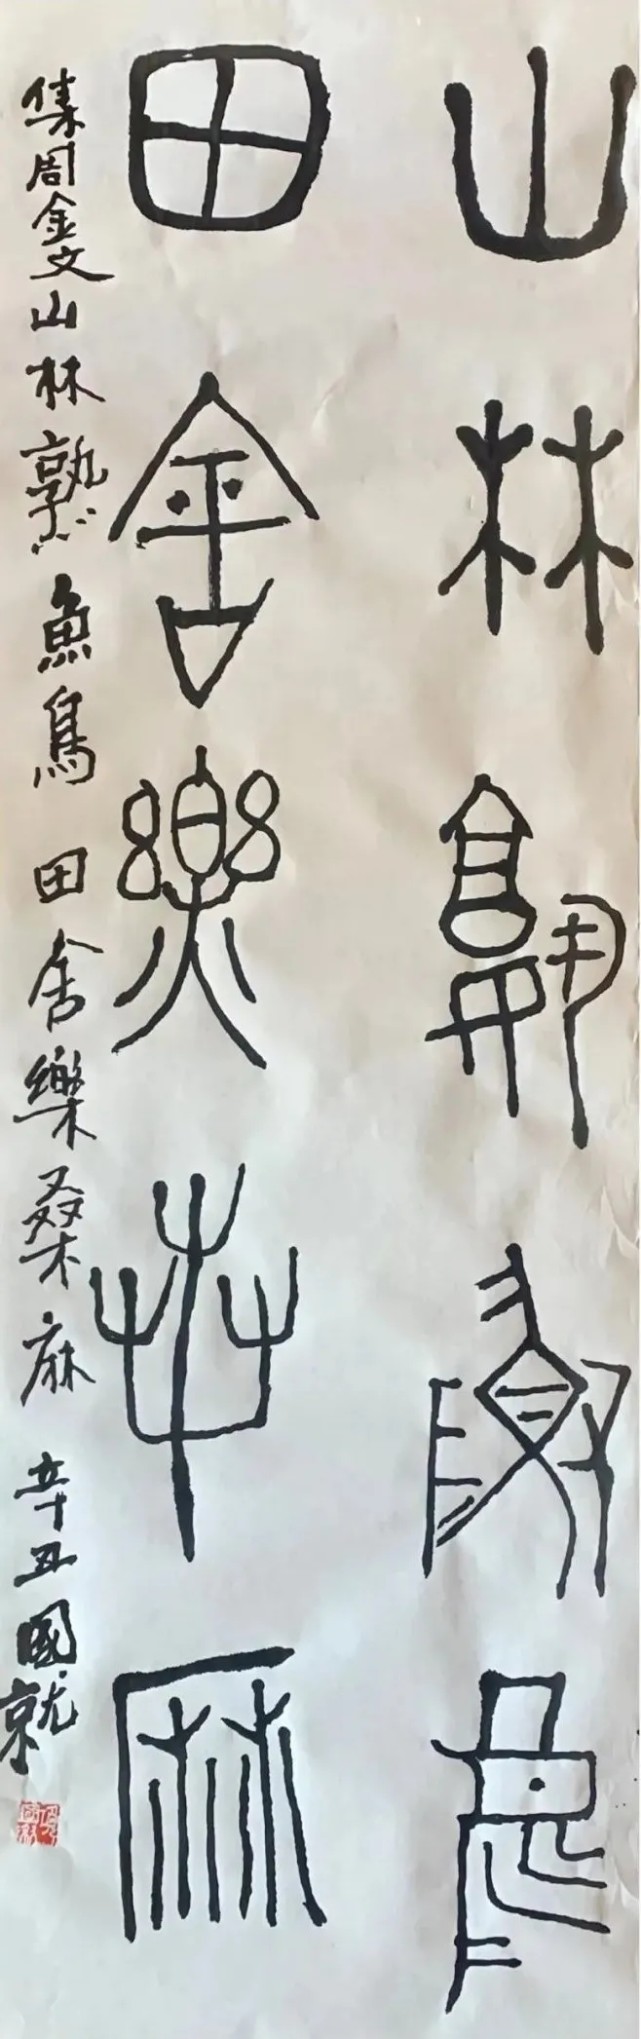 山林孰魚鳥
田舍樂桑麻
集周金文山林熟魚鳥 田舍樂桑麻 辛丑國就